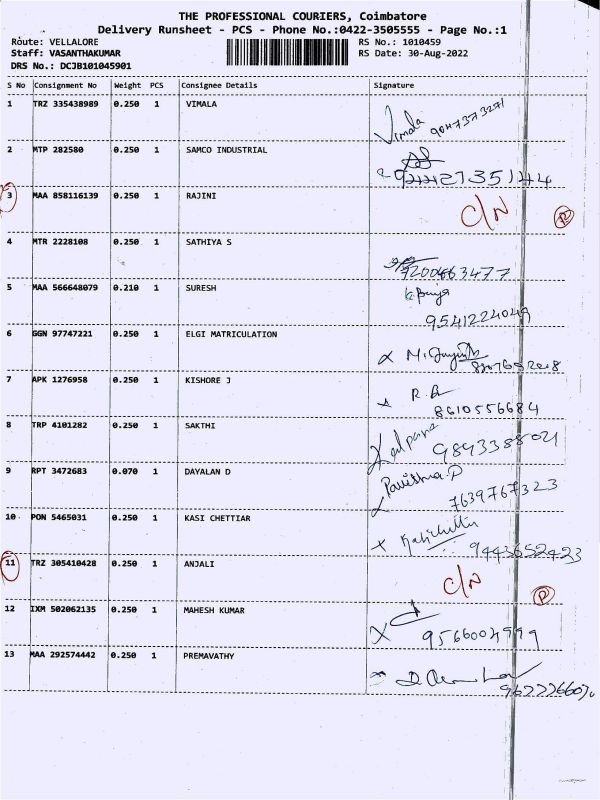 THE PROFESSIONAL COURIERS, Coimbatore
Delivery Runsheet - PCS - Phone No.:0422-3505555 - Page No.:1
Route: VELLALORE RS No.: 1010459
Staff: VASANTHAKUMAR RS Date: 30-Aug-2022
DRS No.: DCJB101045901
S No Consignment No Weight PCS Consignee Details Signature
1 TRZ 335438989 0.250 1 VIMALA Vimala 9047373271
2 MTP 282580 0.250 1 SAMCO INDUSTRIAL
3 MAA 858116139 0.250 1 RAJINI C/N R
4 MTR 2228108 0.250 1 SATHIYA S 9200463477
5 MAA 566648079 0.210 1 SURESH 9541224049
6 GGN 97747221 0.250 1 ELGI MATRICULATION
7 APK 1276958 0.250 1 KISHORE J 8610556684
8 TRP 4101282 0.250 1 SAKTHI Kalpana 9893388021
9 RPT 3472683 0.070 1 DAYALAN D 7639767323
10 PON 5465031 0.250 1 KASI CHETTIAR 9443652423
11 TRZ 305410428 0.250 1 ANJALI C/N R
12 IXM 502062135 0.250 1 MAHESH KUMAR 9566004999
13 MAA 292574442 0.250 1 PREMAVATHY